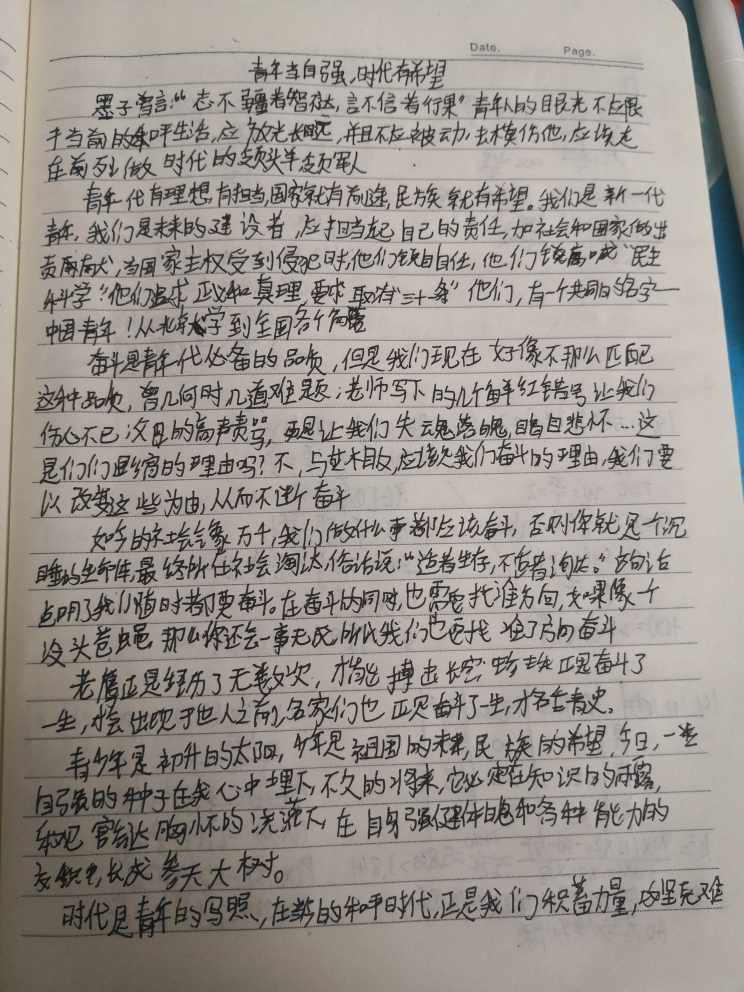 Date. Page.
青年当自强,时代有希望
墨子曾言:“志不疆者智不达,言不信者行果”青年人的目光不应限
于当前的和平生活,应放光长远,并且不应被动,去模仿他,应该走
在前列做时代的领头羊领军人
青年一代有理想,有担当,国家就有前途,民族就有希望。我们是新一代
青年,我们是未来的建设者,应担当起自己的责任,加社会和国家做出
贡献,当国家主权受到侵犯时,他们自任,他们高喊“民主
科学”他们追求正义和真理,要求取消“二十一条”他们,有一个共同的名字—
中国青年!从北京大学到全国各个角落
奋斗是青年一代必备的品质,但是我们现在好像不那么匹配
这种品质,曾几何时几道难题;老师写下的几个鲜红错号让我们
伤心不已父母的高声责骂,更是让我们失魂落魄,暗自悲怀…这
是们们退缩的理由吗?不,与其相反,应该是我们奋斗的理由,我们要
以改变这些为由,从而不断奋斗
如今的社会气象万千,我们做什么事都应该奋斗,否则你就是一个沉
睡的生命体,最终所在社会淘汰,俗话说:“适者生存,不适者淘汰。”这句话
点明了我们随时都要奋斗。在奋斗的同时,也需要找准方向,如果像一个
没头苍蝇那么你还会一事无成所以我们也要找准了方向奋斗
老鹰正是经历了无数次,才能搏击长空,正是奋斗了
一生,才会出现于世人之前,名家们也正是奋斗了一生,才名古青史。
青少年是初升的太阳,少年是祖国的未来,民族的希望,今日,一些
自强的种子在我心中埋下,不久的将来,它必定在知识的雨露,
和宽旷达胸怀的浇灌下,在自身强健体魄和各种能力的
交织中,长成参天大树。
时代是青年的写照,在新的和平时代,正是我们积蓄力量,攻坚克难